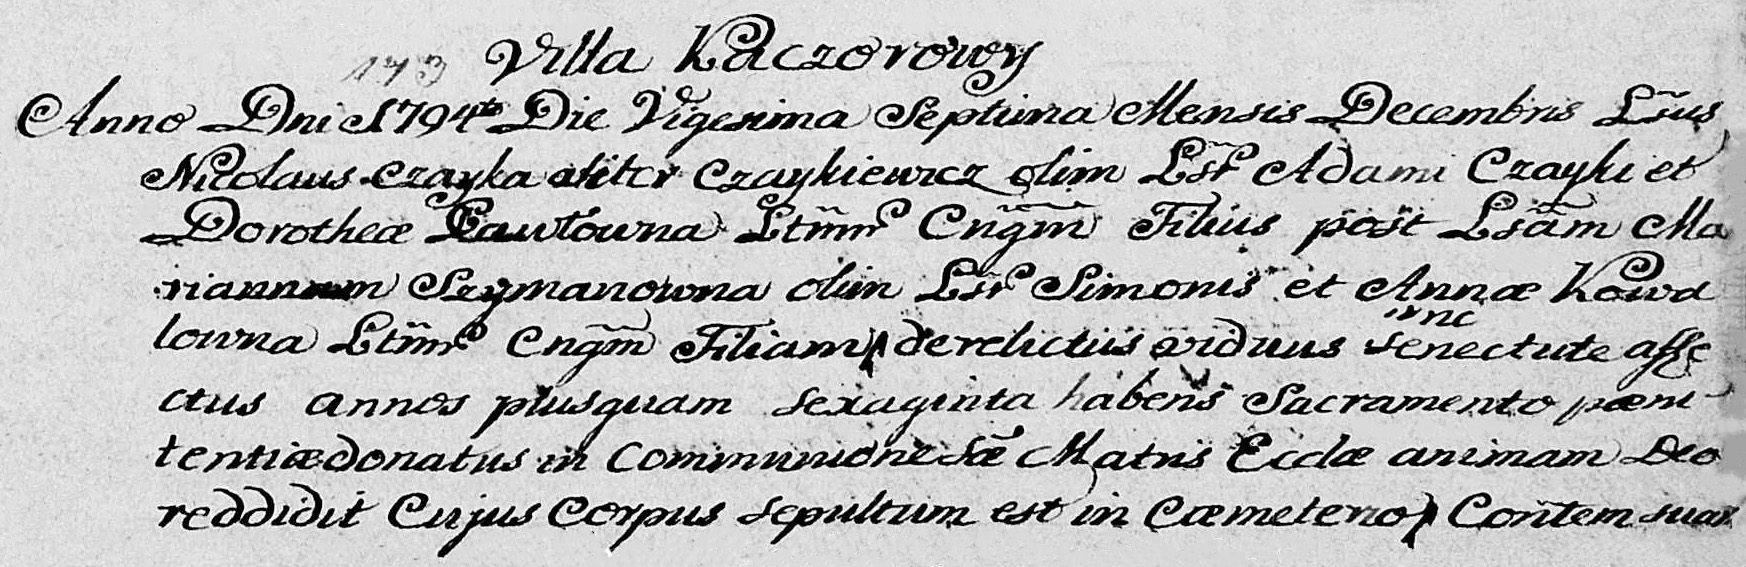 Villa Kaczorowy
Anno Dni 1794to Die Vigesima Septima Mensis Decembris Lsus
Nicolaus Czayka aliter Czaykiewicz olim Lsr Adami Czayki et
Dorotheæ Pawłowna Ltmr Cngm Filius post Lsam Ma
riannam Szymanowna olim Lsr Simonis et Annæ Kowa
lowna Ltmr Cngm Filiam derelictus viduus senectute affe
nunc
ctus annos plusquam sexaginta habens Sacramento pæni-
tentiæ donatus in Communione Sæ Matris Ecclæ animam Deo
reddidit Cujus Corpus sepultum est in Cæmeterio Contem suar